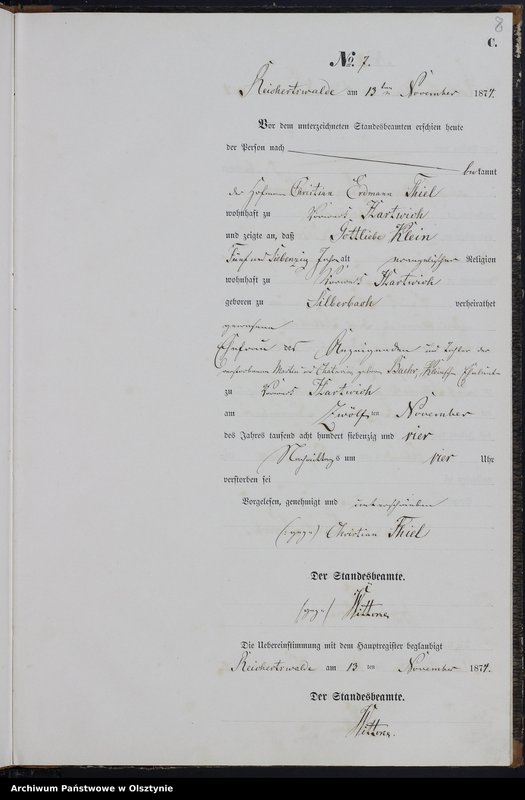 8
C.
No. 7.
Reichertswalde am 13ten November 1874.
Vor dem unterzeichneten Standesbeamten erschien heute
der Person nach
bekannt
der Hofmann Christian Erdmann Thiel
wohnhaft zu Vorwerk Hartwich
und zeigte an, daß Gottliebe Klein
Fünf und Siebenzig Jahr alt evangelischer Religion
wohnhaft zu Vorwerk Hartwich
geboren zu Silberbach verheirathet
gewesene
Ehefrau des Anzeigenden und Tochter der
verstorbenen Martin und geborene Baehr, Kleinschen Eheleute
zu Vorwerk Hartwich
am Zwölften November
des Jahres tausend acht hundert siebenzig und vier
Nachmittags um vier Uhr
verstorben sei
Vorgelesen, genehmigt und unterschrieben
(:gez:) Christian Thiel
Der Standesbeamte.
(gez:)
Die Uebereinstimmung mit dem Hauptregister beglaubigt
Reichertswalde am 13 ten November 1874.
Der Standesbeamte.
Archiwum Państwowe w Olsztynie